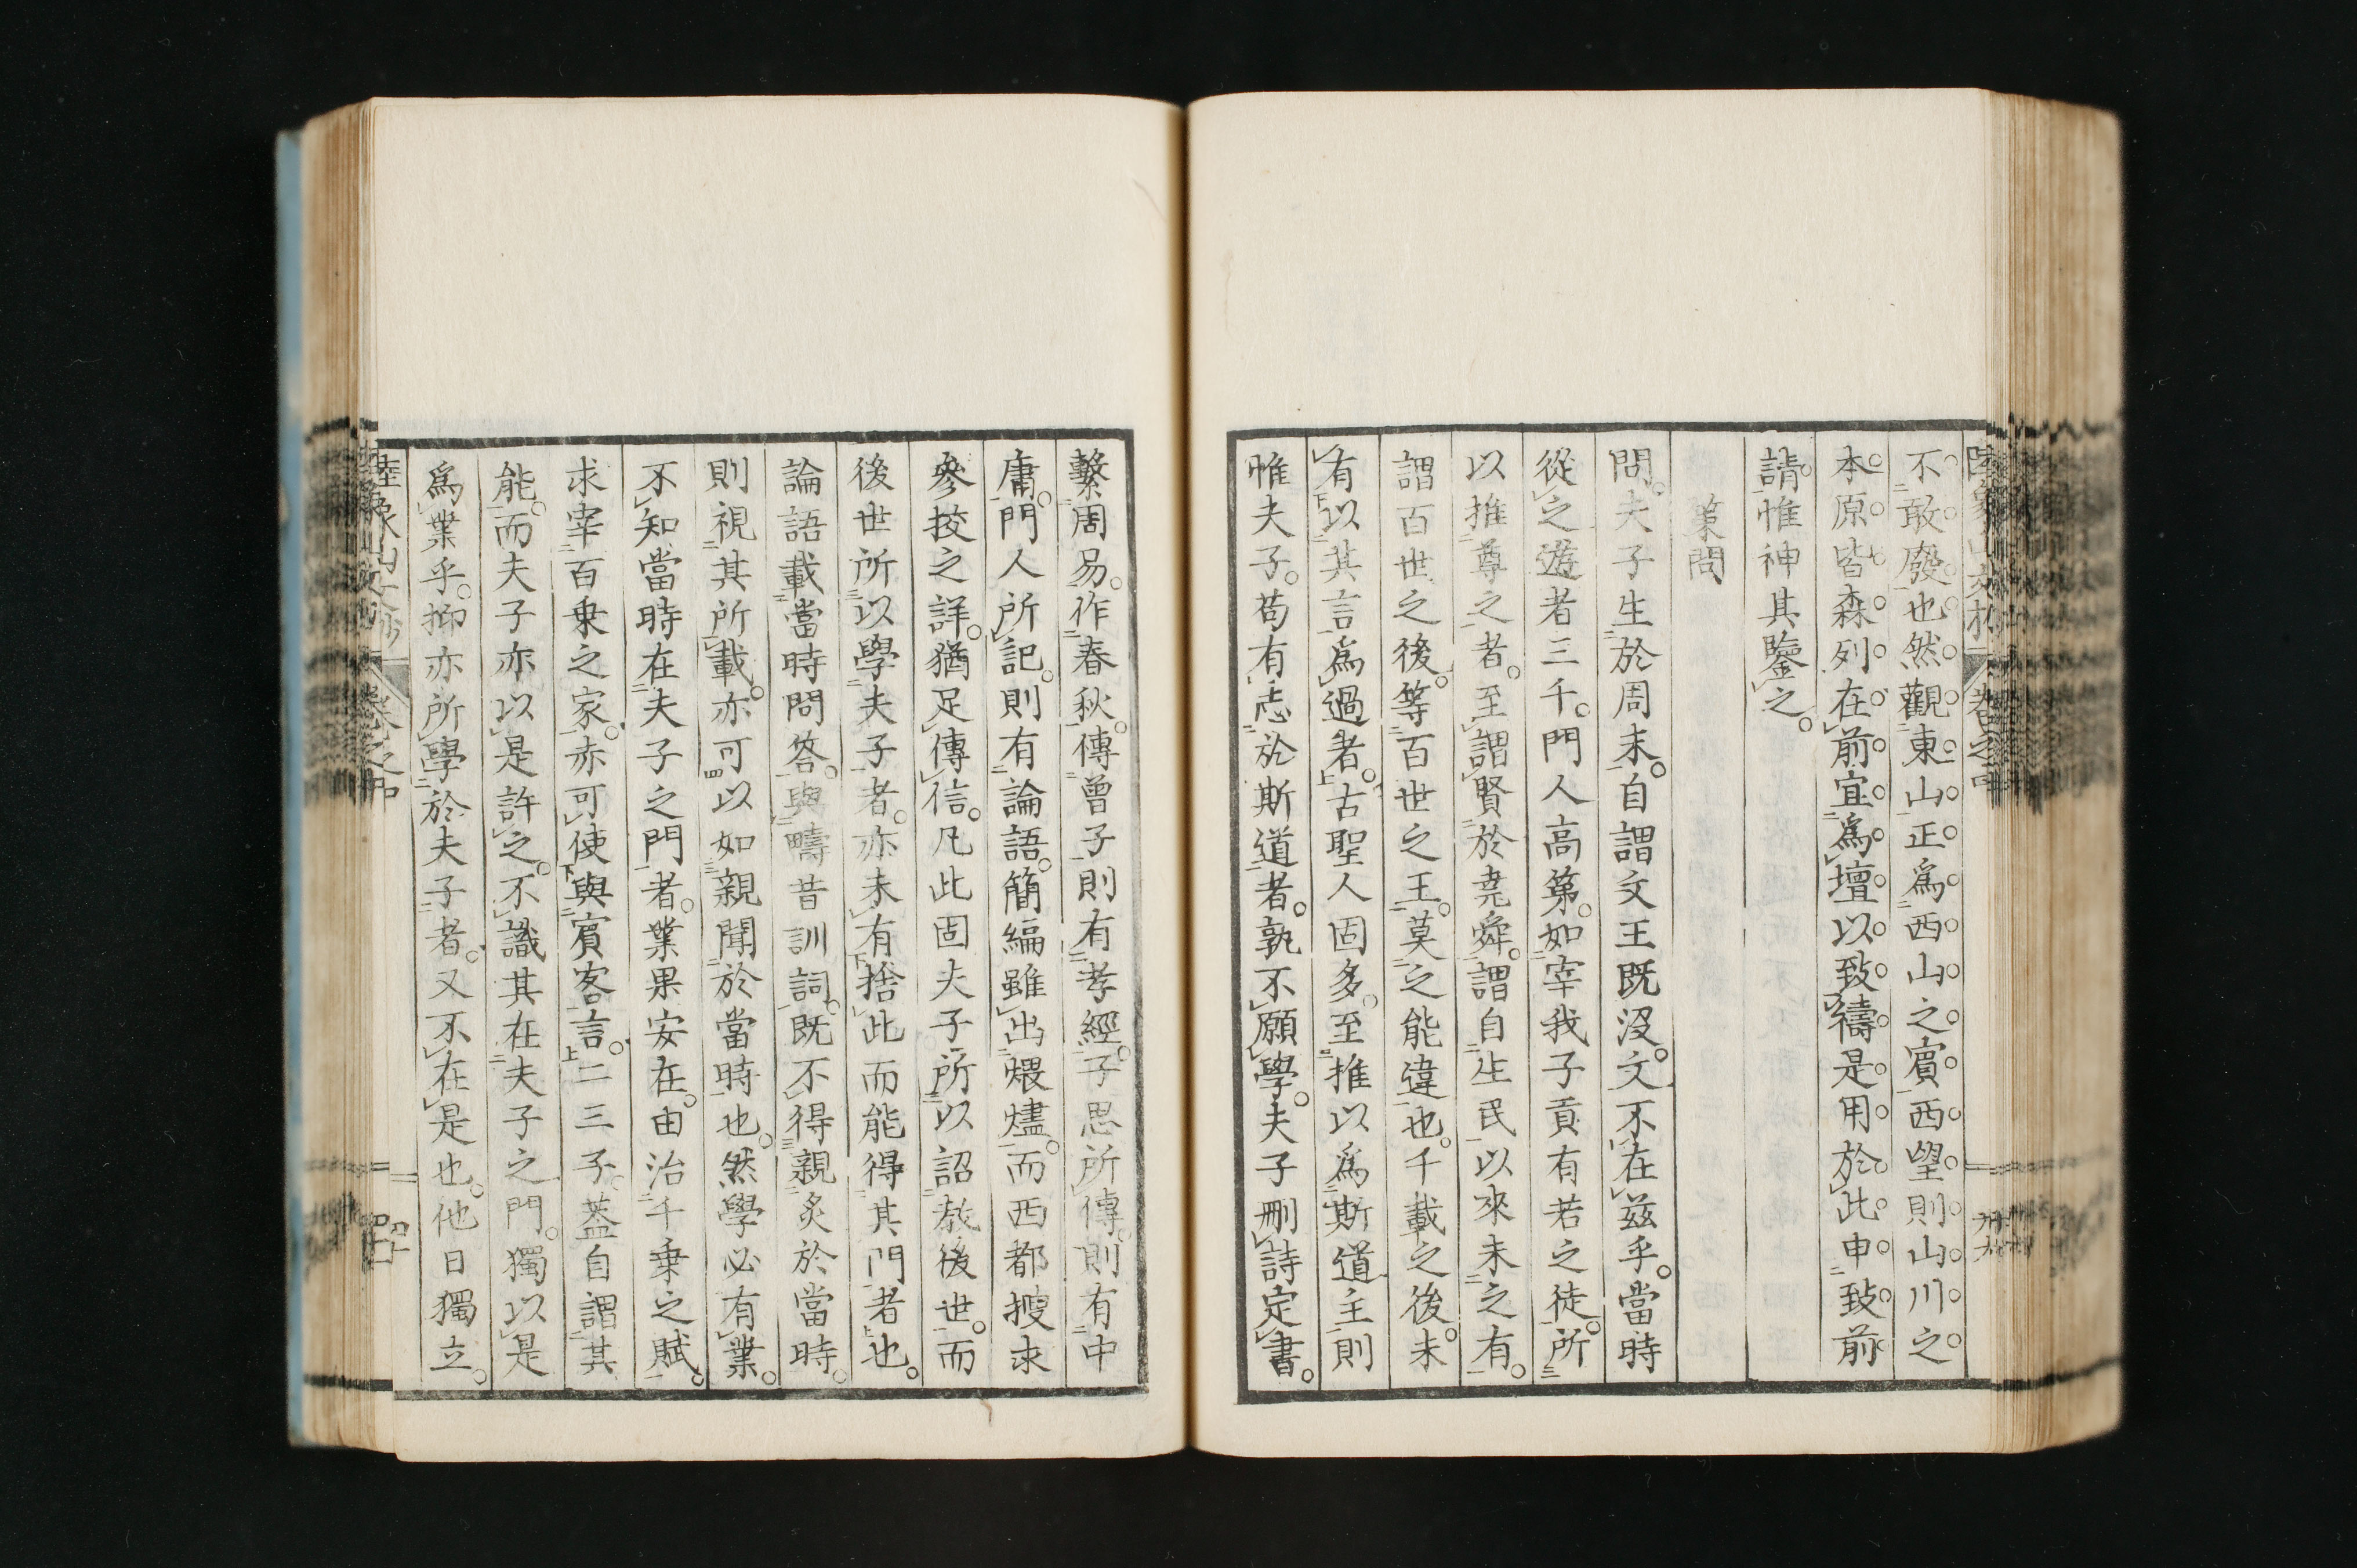 不敢廢也然觀東山正爲西山之賓西望則山川之
本原皆森列在前宜爲壇以致禱是用於此申致前
請惟神其鑒之。
策問
問。夫子生於周末。自謂文王既沒。文不在茲乎。當時
從之遊者三千。門人高第。如宰我子貢有若之徒。所
以推尊之者。至謂賢於堯舜。謂自生民以來未之有。
謂百世之後。等百世之王。莫之能違也。千載之後。未
有以其言爲過者。古聖人固多。至推以爲斯道主則
惟夫子。苟有志於斯道者。孰不願學。夫子刪詩定書。
繫周易。作春秋。傳曾子則有孝經。子思所傳。則有中
庸。門人所記。則有論語。簡編雖出煨燼。而西都搜求
參挍之詳。猶足傳信。凡此固夫子所以詔敎後世。而
後世所以學夫子者。亦未有捨此而能得其門者也。
論語載當時問答。與疇昔訓詞。既不得親炙於當時。
則視其所載。亦可以如親聞於當時也。然學必有業。
不知當時在夫子之門者。業果安在。由治千乗之賦。
求宰百乗之家。赤可使與賓客言。二三子。蓋自謂其
能。而夫子亦以是許之。不識其在夫子之門。獨以是
爲業乎。抑亦所學於夫子者。又不在是也。他日獨立。
陸象山文鈔 卷之中 四十